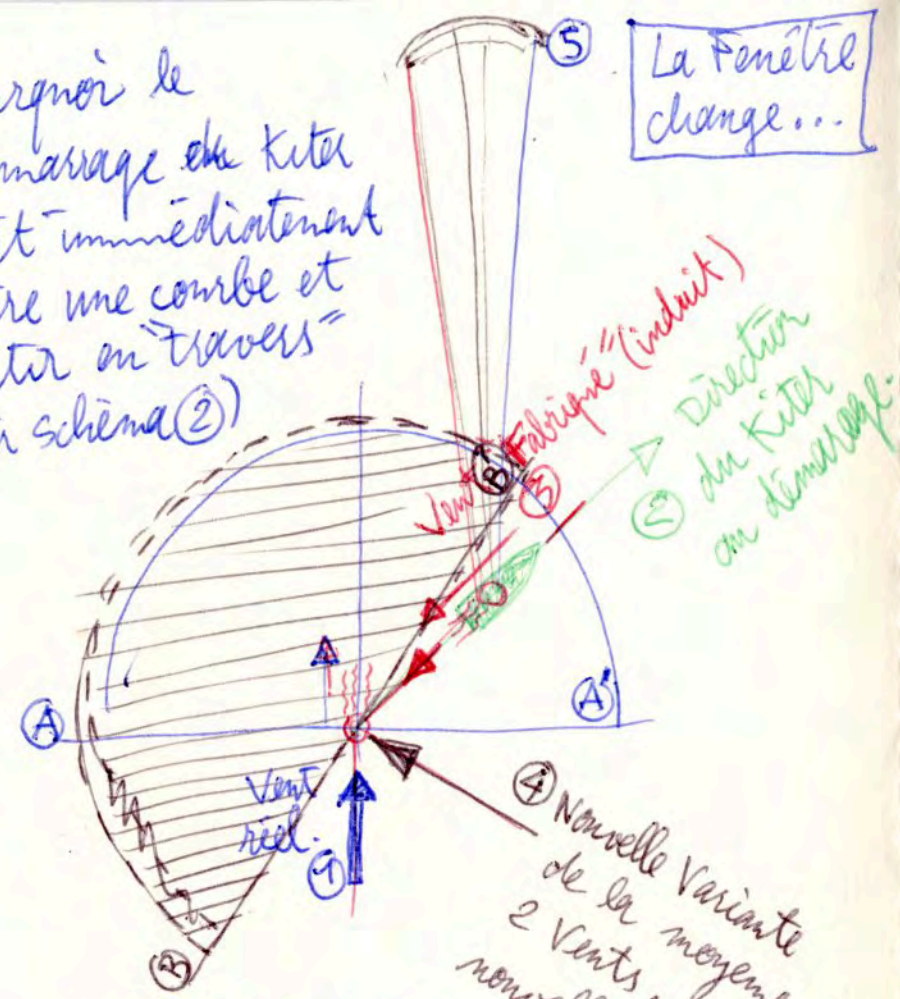 La Fenêtre
change...
rquoi le
marrage du Kiter
t immédiatement
re une courbe et
tir en "travers"
schéma ②)
⑤
Vent "Fabriqué" (induit)
③
② Direction
du Kiter
au démarage.
Ⓑ
Ⓐ
Ⓐ'
Vent
réel.
①
④ Nouvelle Variante
de la moyenne
2 Vents
Ⓑ